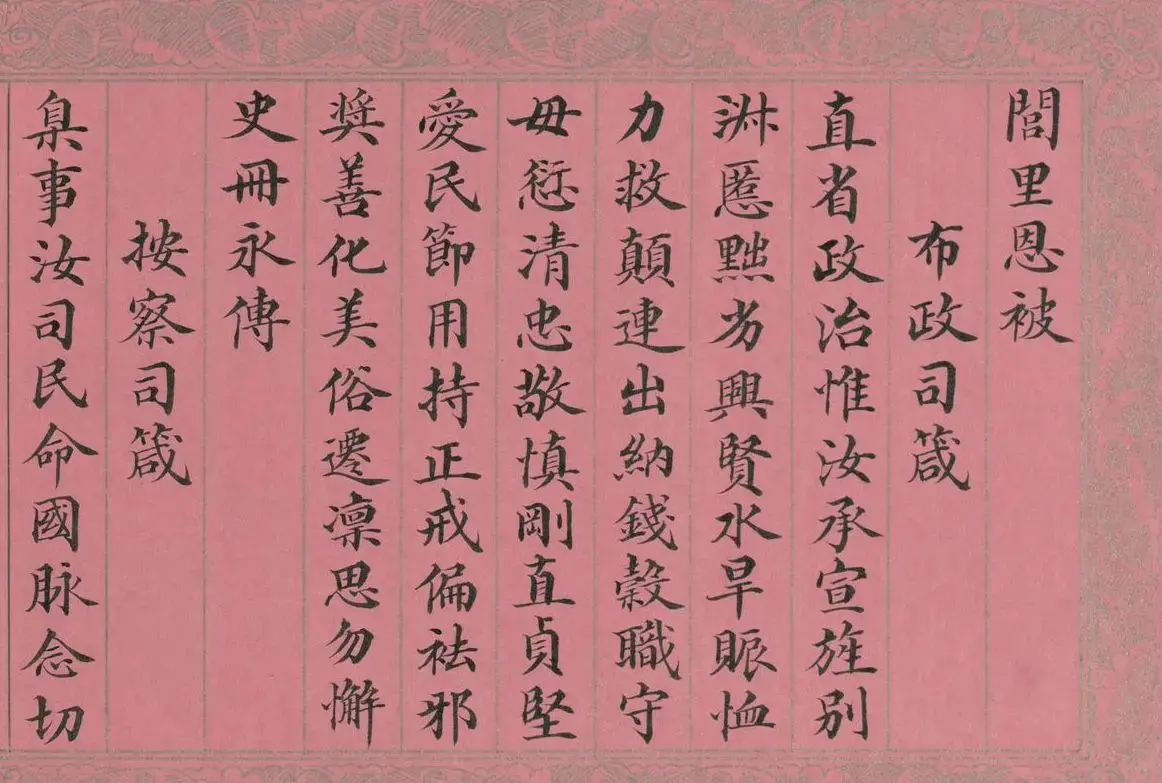 閭里恩被
布政司箴
直省政治惟汝承宣旌别
淋慝黜劣興賢水旱賑恤
力救顛連出納錢穀職守
毋愆清忠敬慎剛直貞堅
愛民節用持正戒偏祛邪
奬善化美俗遷凛思勿懈
史冊永傳
按察司箴
臬事汝司民命國脉念切